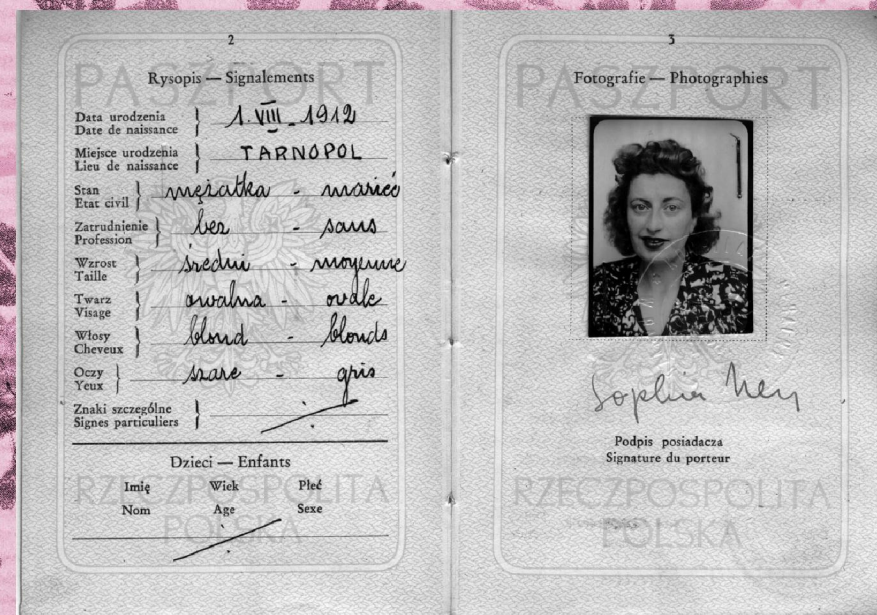 2
PASZPORT
Rysopis — Signalements
Data urodzenia
Date de naissance
1. VIII _ 1912
Miejsce urodzenia
Lieu de naissance
TARNOPOL
Stan
Etat civil
mężatka - mariée
Zatrudnienie
Profession
bez - sans
Wzrost
Taille
średni - moyenne
Twarz
Visage
owalna - ovale
Włosy
Cheveux
blond - blonds
Oczy
Yeux
szare - gris
Znaki szczególne
Signes particuliers
Dzieci — Enfants
Imię Wiek Płeć
Nom Age Sexe
RZECZPOSPOLITA
POLSKA
3
PASZPORT
Fotografie — Photographies
Sophia
Podpis posiadacza
Signature du porteur
RZECZPOSPOLITA
POLSKA